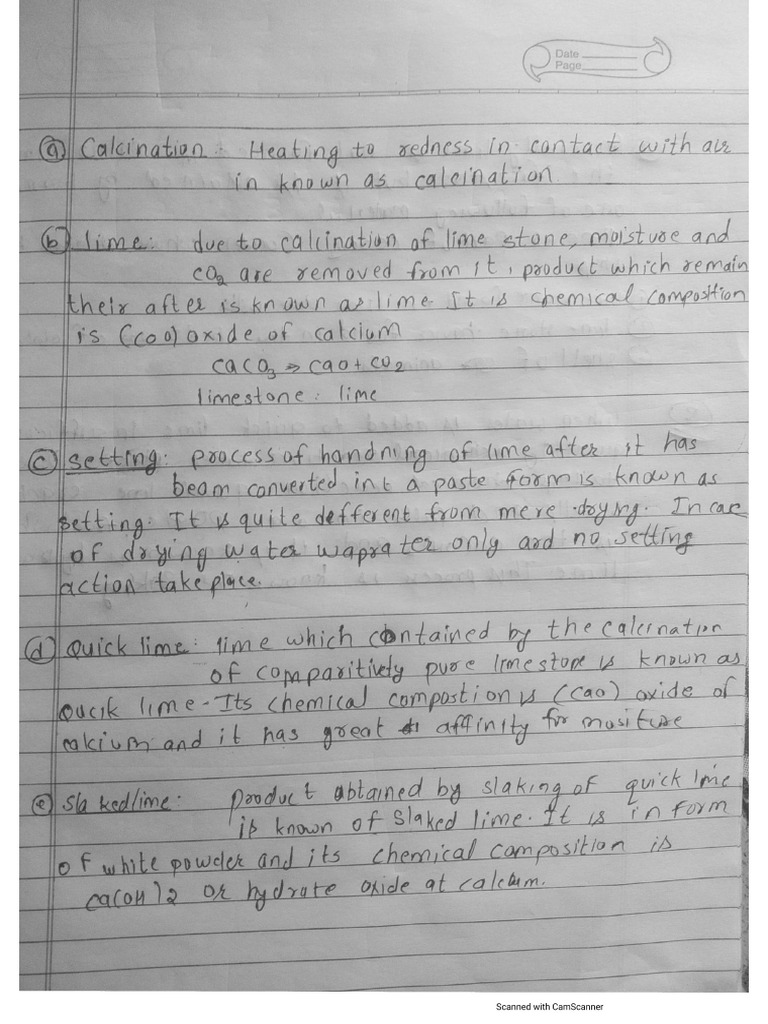 Date
Page
(a) Calcination : Heating to redness in contact with air
in known as calcination
(b) lime: due to calcination of lime stone, moisture and
CO2 are removed from it, product which remain
their after is known as lime. It is chemical composition
is (Cao) oxide of calcium
CaCO3 → CaO + CO2
limestone : lime
(c) setting: process of handning of lime after it has
beam converted int a paste form is known as
setting. It is quite defferent from mere drying. In cae
of drying water waprater only and no setting
action take place.
(d) Quick lime: lime which contained by the calcination
of comparitively pure limestone is known as
Qucik lime - Its chemical compostion is (Cao) oxide of
calcium and it has great affinity for mositure
(e) Slaked lime: product obtained by slaking of quick lime
is known of Slaked lime. It is in form
of white powder and its chemical composition is
Ca(OH)2 or hydrate oxide at calcium.
Scanned with CamScanner